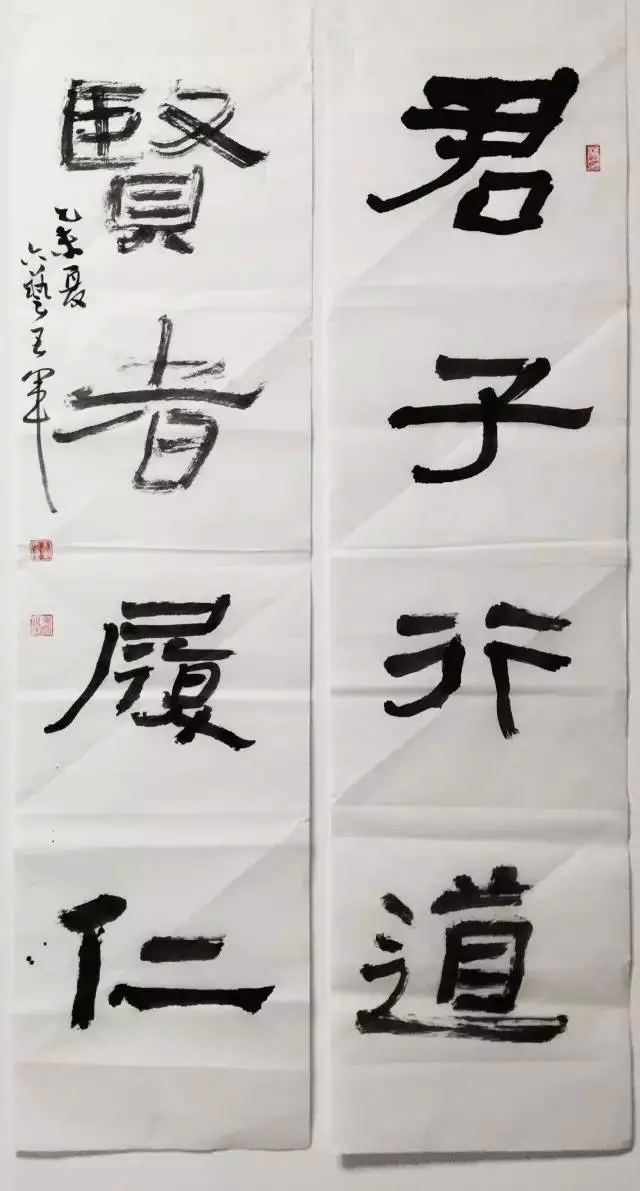 君子行道
賢者履仁
乙未夏
六藝王軍